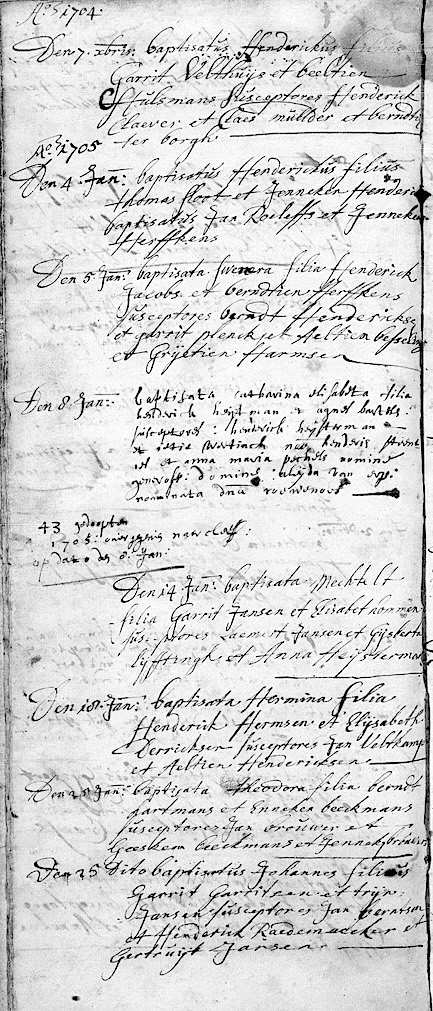 Ao 1704.
Den 7. xbris. baptisatus Henderickus filius
Garrit Velthuijs et beeltien
Hulsmans susceptores Henderick
Claever et Claes mullder et berndt
ter borgh.
Ao 1705
Den 4. Jan: baptisatus Henderickus filius
thomas sloot et Jenneken Henderick
baptisatus Jan Roeloffs et Jenneken
Herffkens
Den 5 Jan: baptisata swenera filia Henderick
Jacobs et berndtien Herffkens
susceptores berndt Henderickse
et garrit plenck et Aeltien besseling
et Grijetien Harmsen
Den 8 Jan: baptisata catharina elisabeta filia
henderick heijtman et agnes bartels
susceptores: henderick heijsterman
et
et anna maria nomine
domine: aleijda van
nominata
43 gedoopten
1705:
op dato den 8: Jan:
Den 14 Jan: baptisata Mechtelt
filia Garrit Jansen et Elisabet hommen
susceptores Laemert Jansen et Gijsbertn
lijfftingh et Anna Heijsterman
Den 18 Jan: baptisata Hermina filia
Henderick Hermsen et Elijsabeth
Derricksen susceptores Jan Veltkamp
et Aeltien Hendericksen
Den 25 Jan: baptisata theodora filia berndt
gartmans et Enneken beeckmans
susceptores Jan brouwer et
Goesken beeckmans et Jenneken brouwers
Den 25 Dito baptisatus Johannes filius
Garrit Gartitzen et trijn:
Jansen susceptores Jan berntsen
et Henderick Raedemaecker et
Gertruijt Jansen